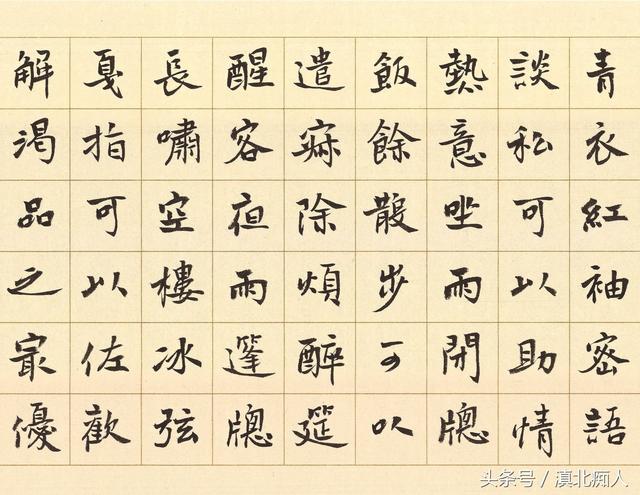 青衣紅袖密語
談私可以助情
熱意坐雨開牕
飯餘散步可以
遣寂除煩醉筵
醒客夜雨篷牕
長嘯空樓冰弦
戛指可以佐歡
解渴品之最優
头条号／滇北痴人